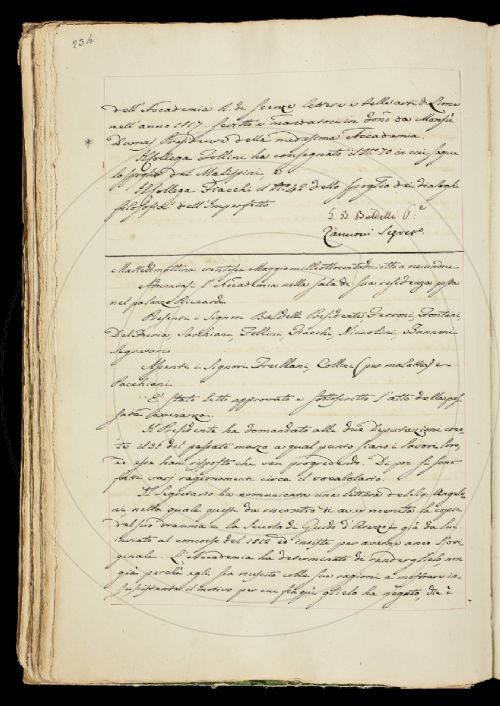 234
dell'Accademia R. di Scienze Lettere e belle arti di Lione
nell'anno 1817 scritto e mandatoci in dono da Monsù
Dumas Presidente della medesima Accademia.
Il Collega Follini ha consegnato il N.o 70 in cui segue
lo spoglio del Malispini.
Il Collega Fiacchi il N.o 48 dello spoglio dei Dialoghi
filosofici dell'Imperfetto
G. B. Baldelli P.e
Zannoni Segret.o
Martedì mattina ventisei Maggio mille ottocento diciotto a
Adunavasi l'Accademia nella sala di sua residenza posta
nel palazzo Riccardi.
Presenti i Signori Baldelli Presidente, Ferroni, Fontani,
Del Furia, Sarchiani, Follini, Fiacchi, Niccolini, e Zannoni
Segretario
Assenti i Signori Frullani, Collini (per malattia) e
Pacchiani.
È stato letto approvato e sottoscritto l'atto della pas-
sata adunanza.
Il Presidente ha domandato alle due Deputazioni crea-
te il 26 del passato marzo a qual punto siano i lavori loro,
ed esse han risposto che van progredendo. Di poi si sono
fatti varj ragionamenti circa il vocabolario.
Il Segretario ha comunicata una lettera del Sig. Angelo
nella quale questi dà riscontro di aver ricevuta la copia
del suo dramma la Scuola di Guido d'Arezzo già da lui
inviato al concorso del 1812 ed insiste per averne anco l'ori-
ginale. L'Accademia ha determinato di renderglielo non
già perchè egli sia riuscito colle sue ragioni a mostrare in-
sussistente il motivo per cui fin qui glielo ha negato, che è